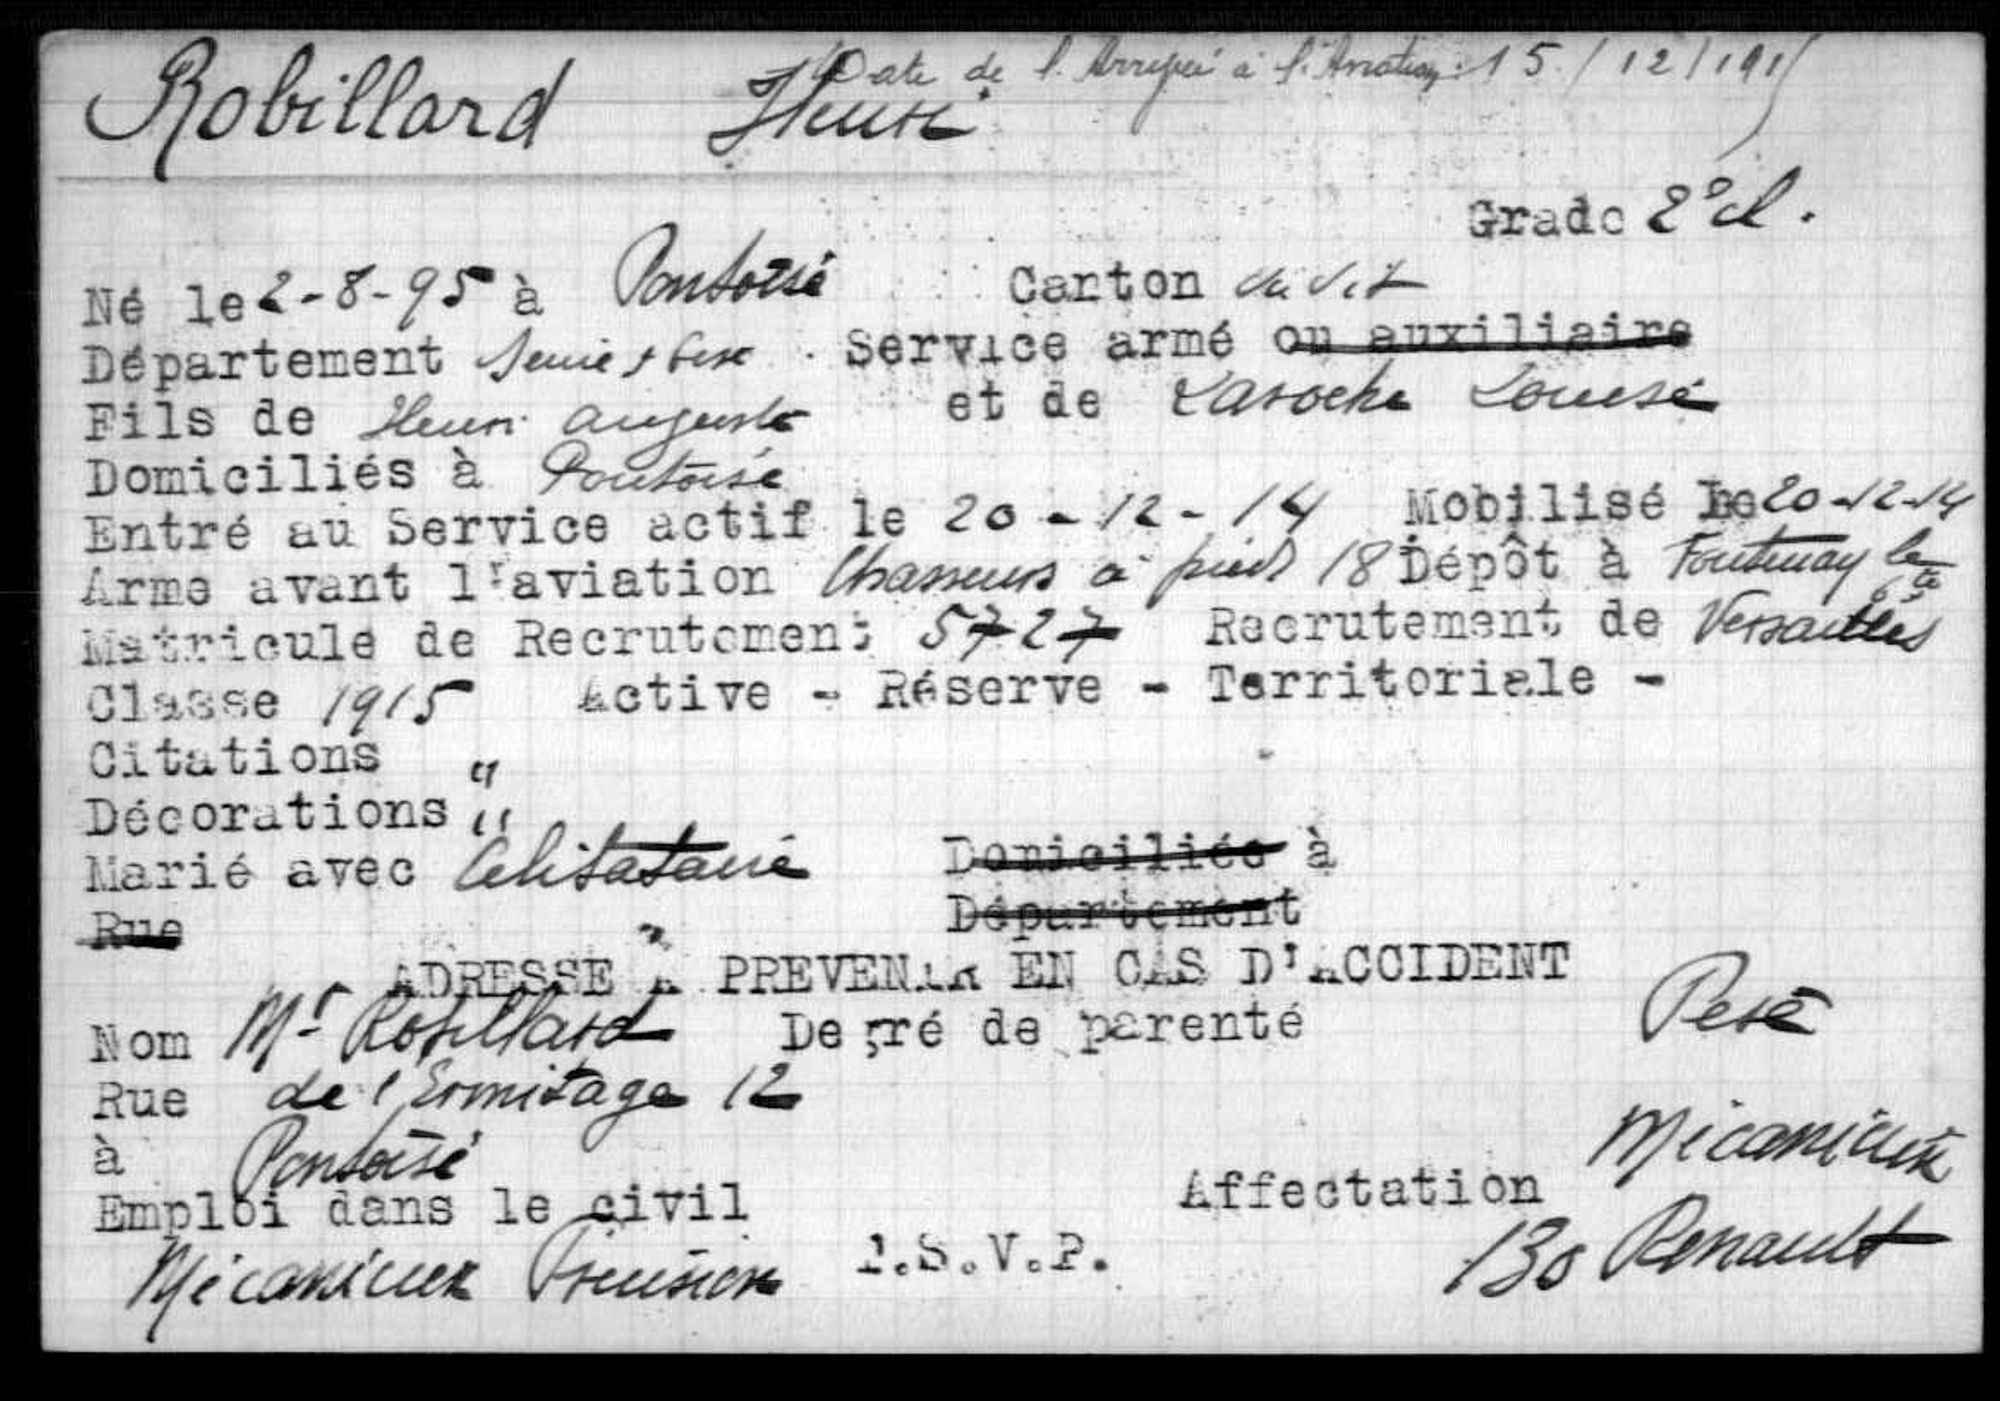 Date de l'Arrivée à l'Aviation: 15/12/1915
Robillard Henri
Grade 2e cl.
Né le 2-8-95 à Pontoise Carton
Département Seine & Oise . Service armé ou auxiliaire
Fils de Henri Auguste et de Laroche Louise
Domiciliés à Pontoise
Entré au Service actif le 20-12-14 Mobilisé le 20-12-14
Arme avant l'aviation Chasseurs à pied 18 Dépôt à Fontenay le Cte
Matricule de Recrutement 5727 Recrutement de Versailles
Classe 1915 Active - Réserve - Territoriale -
Citations "
Décorations "
Marié avec Célibataire Domiciliés à
Rue " Département
ADRESSE A PREVENIR EN CAS D'ACCIDENT
Nom Mr Robillard Degré de parenté Père
Rue de l'Ermitage 12
à Pontoise
Emploi dans le civil Affectation Mécanicien
Mécanicien Précision T.S.V.P. 130 Renault